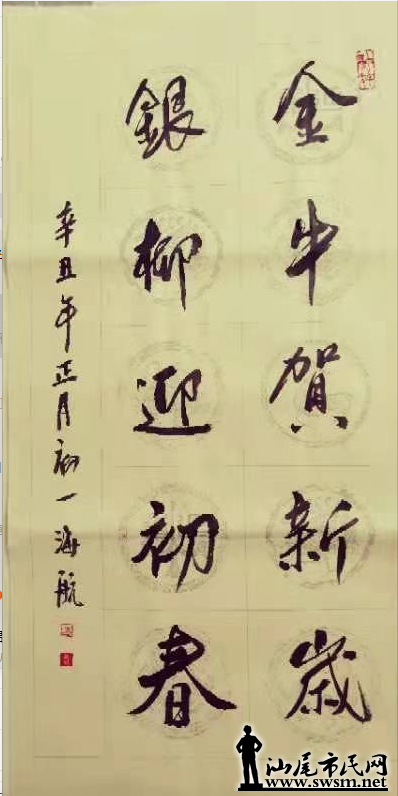 金牛賀新歲
銀柳迎初春
辛丑年正月初一海航
汕尾市民网
www.swsm.net